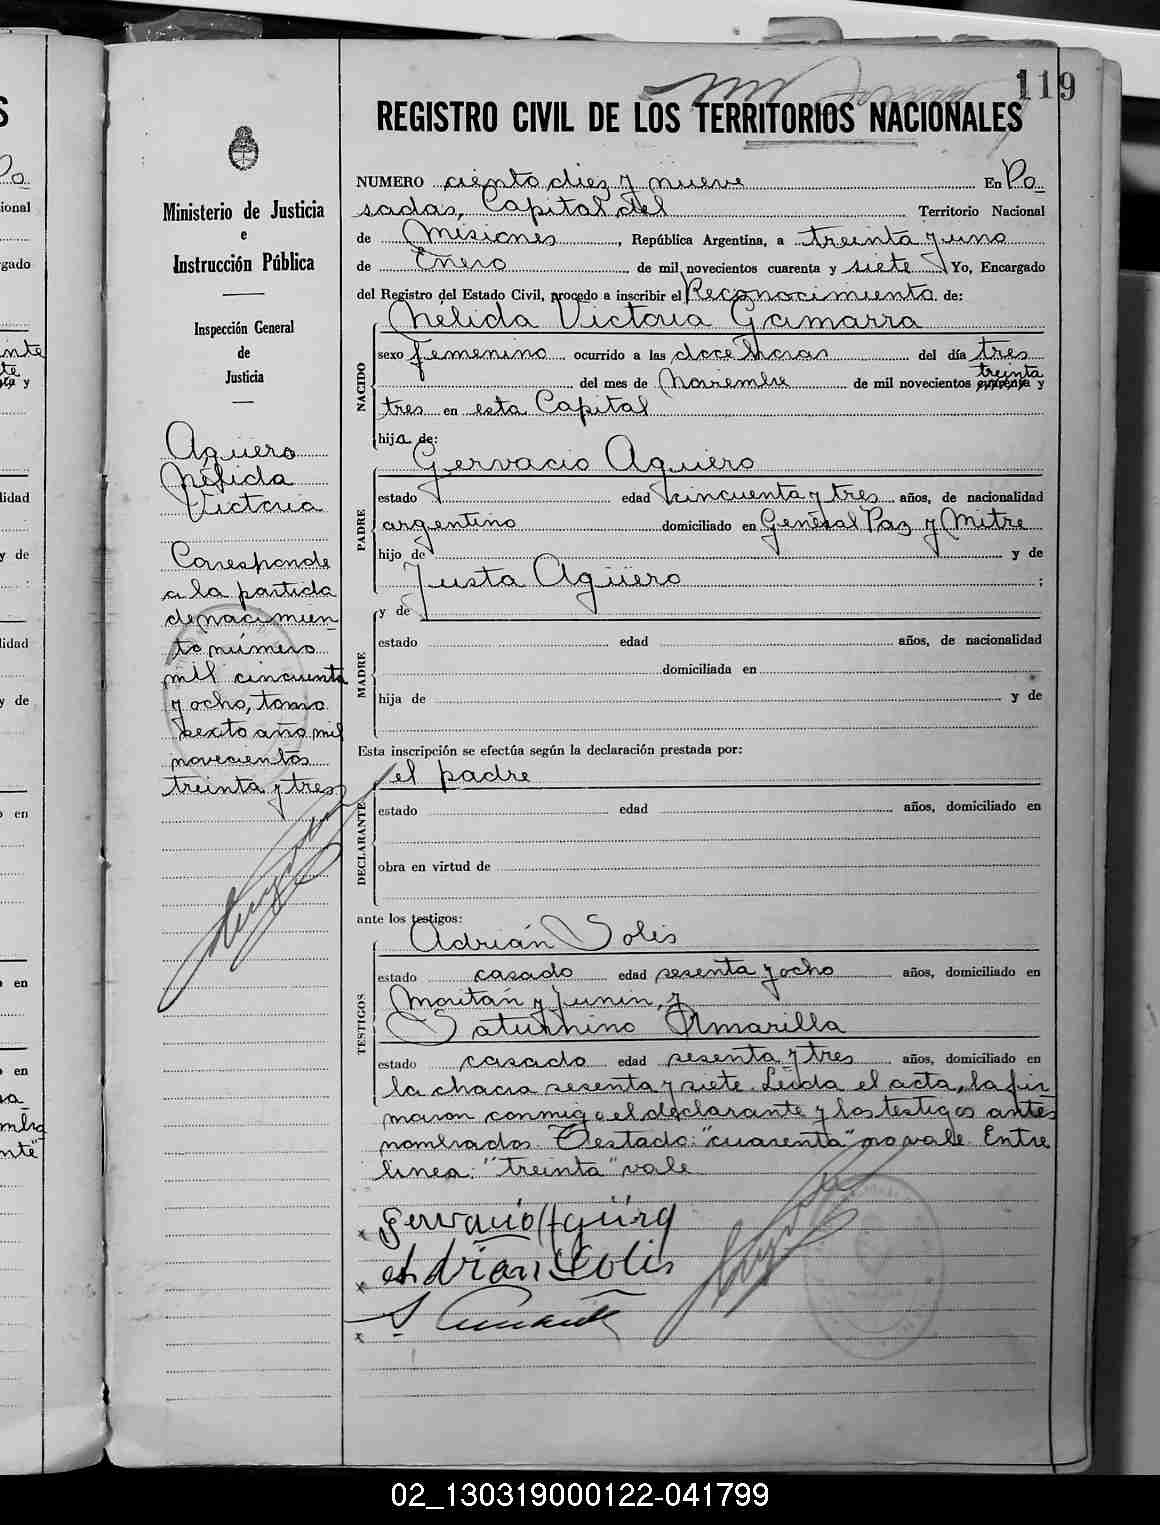 119
REGISTRO CIVIL DE LOS TERRITORIOS NACIONALES
Ministerio de Justicia
e
Instrucción Pública
Inspección General
de
Justicia
Agüero
Nélida
Victoria
Corresponde
a la partida
de nacimien-
to número
mil cincuenta
y ocho, tomo
sexto año mil
novecientos
treinta y tres
NUMERO ciento diez y nueve En Po-
sadas, Capital del Territorio Nacional
de Misiones, República Argentina, a treinta y uno
de Enero de mil novecientos cuarenta y siete Yo, Encargado
del Registro del Estado Civil, procedo a inscribir el Reconocimiento de:
Nelida Victoria Gamarra
NACIDO
sexo femenino ocurrido a las doce horas del día tres
treinta
del mes de Noviembre de mil novecientos cuarenta y
tres en esta Capital
hija de:
Gervacio Agüero
PADRE
estado edad cincuenta y tres años, de nacionalidad
argentino domiciliado en General Paz y Mitre
hijo de y de
Justa Agüero ;
y de
MADRE
estado edad años, de nacionalidad
domiciliada en
hija de y de
Esta inscripción se efectúa según la declaración prestada por:
el padre
DECLARANTE
estado edad años, domiciliado en
obra en virtud de
ante los testigos:
Adrián Solis
TESTIGOS
estado casado edad sesenta y ocho años, domiciliado en
y Junin, y
Saturnino Amarilla
estado casado edad sesenta y tres años, domiciliado en
la chacra sesenta y siete. Leída el acta, la fir-
maron conmigo el declarante y los testigos antes
nombrados. Testado: "cuarenta" no vale. Entre
linea: "treinta" vale
Gervacio Agüero
Adrian Solis
02_130319000122-041799